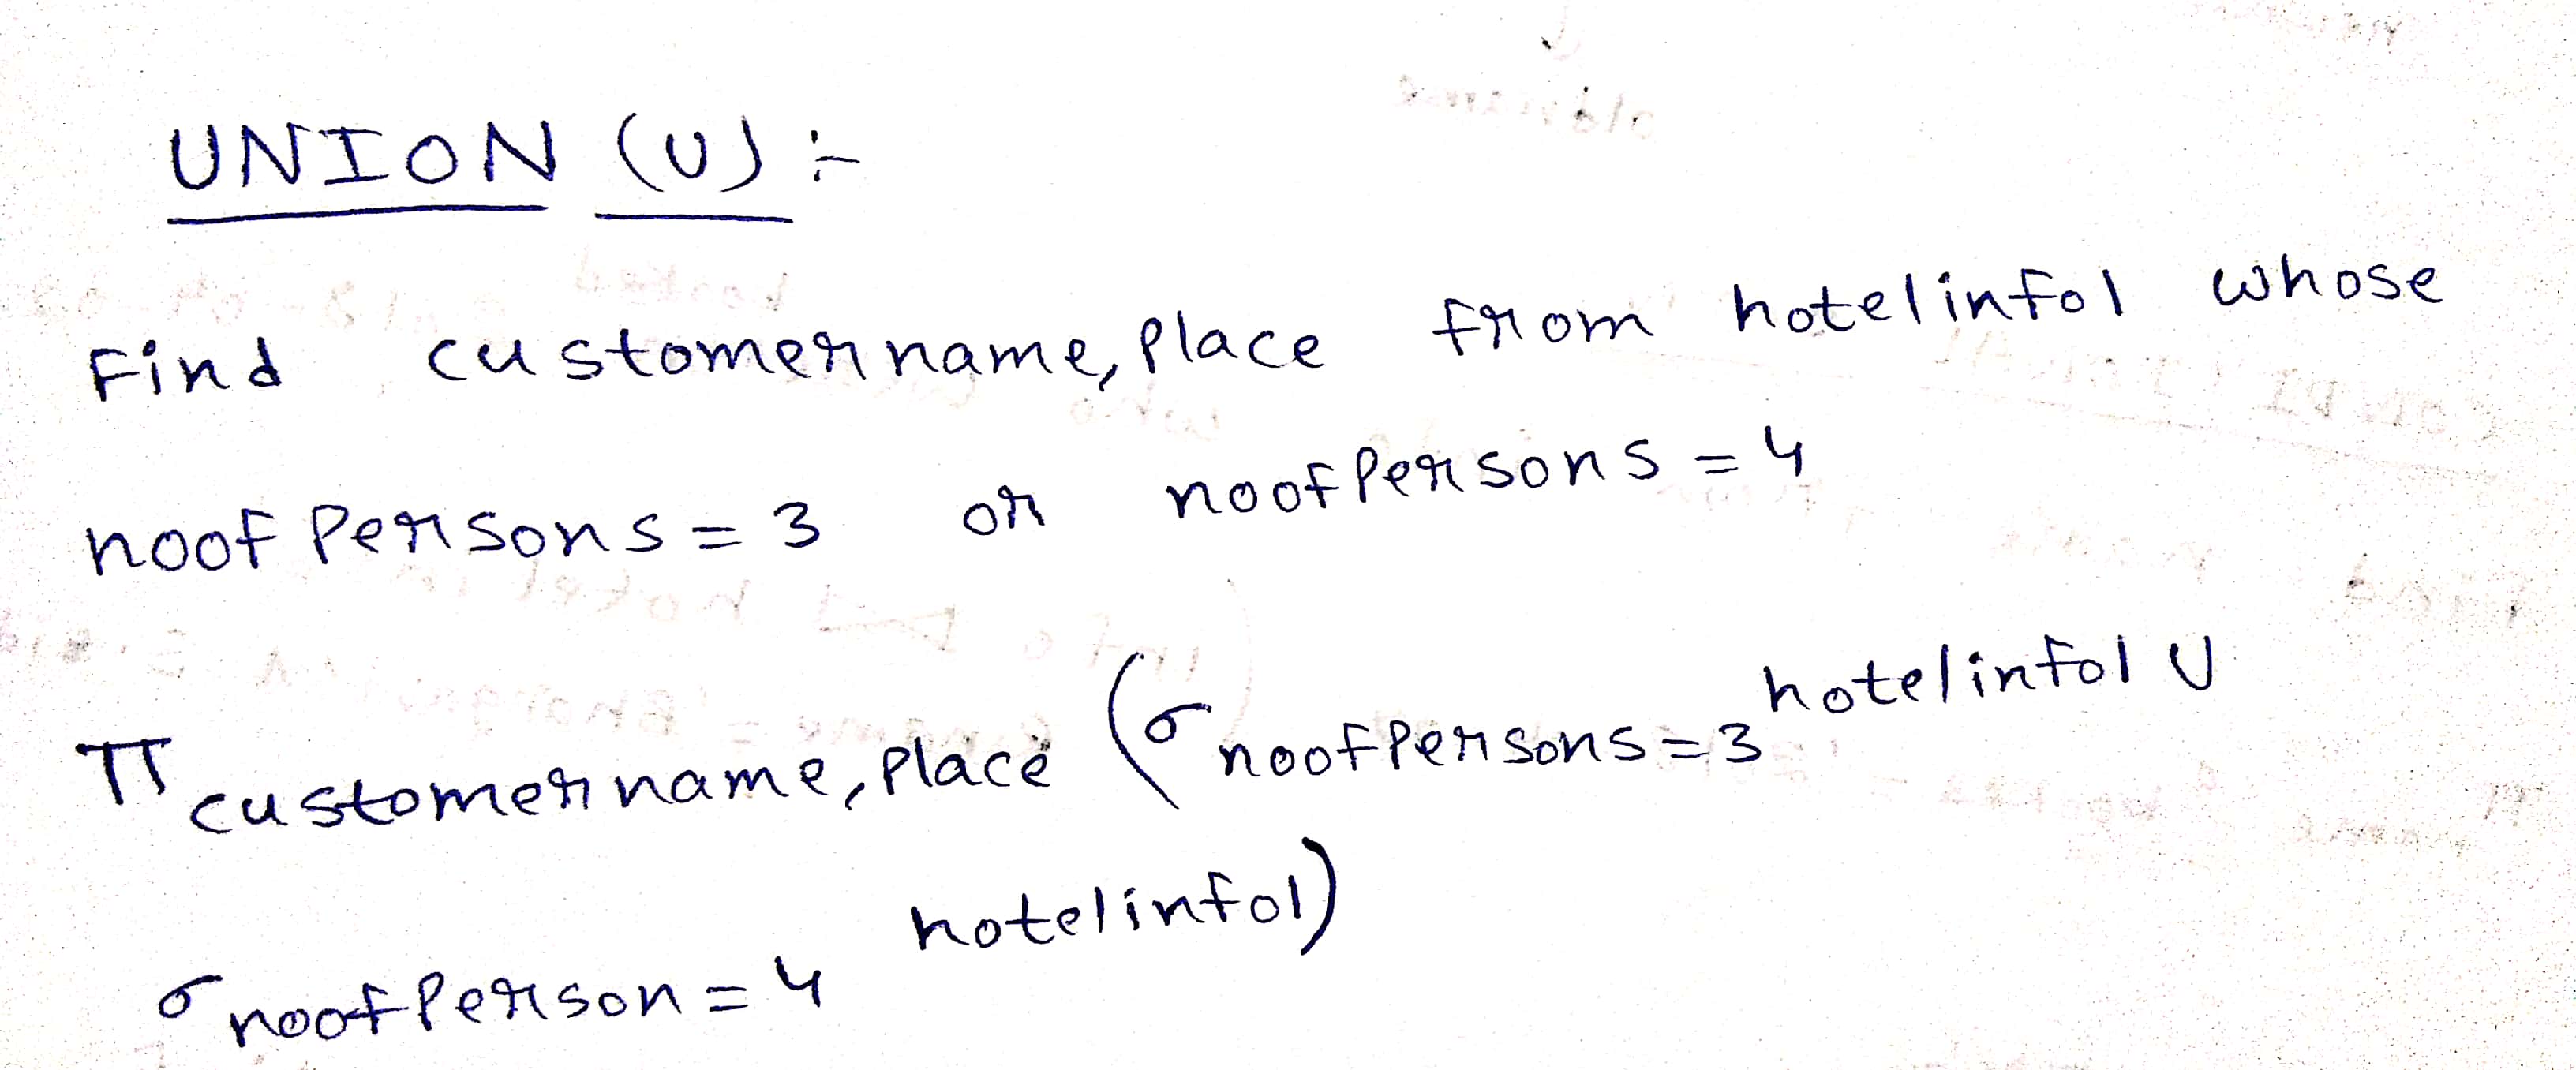 UNION (U) :-
Find customername, place from hotelinfo1 whose
noofpersons = 3 or noofpersons = 4
π customername, place (σ noofpersons = 3 hotelinfo1 U
σ noofperson = 4 hotelinfo1)